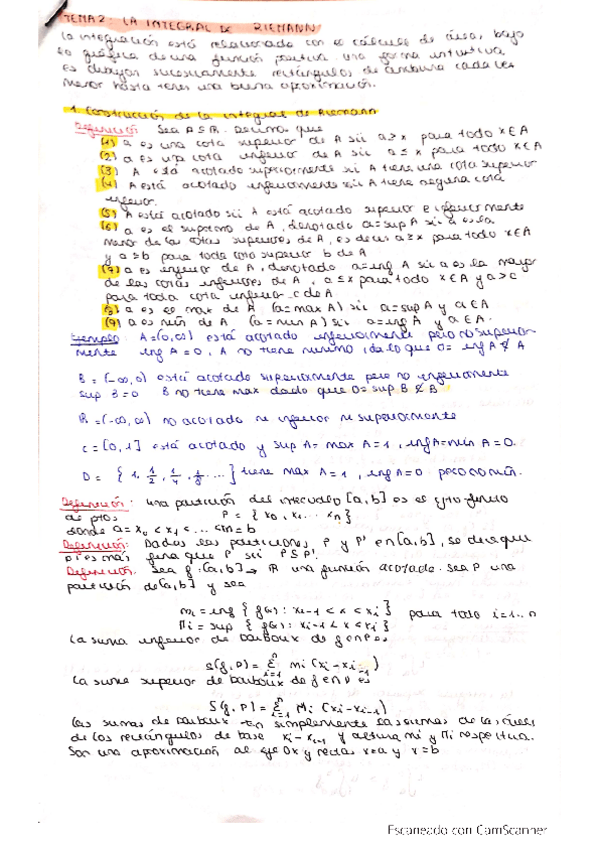 TEMA 2: LA INTEGRAL DE RIEMANN
La integración está relacionada con el cálculo de área, bajo
la gráfica de una función positiva. una forma intuitiva
es dibujar sucesivamente rectángulos de anchura cada vez
menor hasta tener una buena aproximación.
1. Construcción de la integral de Riemann
Definición: Sea A ⊆ R. Decimos que
(1) a es una cota superior de A sii a ≥ x para todo x ∈ A
(2) a es una cota inferior de A sii a ≤ x para todo x ∈ A
(3) A está acotado superiormente sii A tiene una cota superior
(4) A está acotado inferiormente sii A tiene alguna cota
inferior.
(5) A está acotado sii A está acotado superior e inferiormente
(6) a es el supremo de A, denotado a = sup A sii a es la
menor de las cotas superiores de A, es decir a ≥ x para todo x ∈ A
y a ≤ b para toda cota superior b de A
(7) a es inferior de A, denotado a = inf A sii a es la mayor
de las cotas inferiores de A, a ≤ x para todo x ∈ A y a > c
para toda cota inferior c de A.
(8) a es el max de A (a = max A) sii a = sup A y a ∈ A
(9) a es mín de A (a = min A) sii a = inf A y a ∈ A.
Ejemplo: A = (0, ∞) está acotado inferiormente pero no superior-
mente inf A = 0, A no tiene mínimo dado que 0 = inf A ∉ A
B = (-∞, 0) está acotado superiormente pero no inferiormente
sup B = 0 B no tiene max dado que 0 = sup B ∉ B
R = (-∞, ∞) no acotado ni inferior ni superiormente
C = [0, 1] está acotado y sup A = max A = 1, inf A = min A = 0.
D = { 1, 1/2, 1/4, 1/8 ... } tiene max A = 1, inf A = 0 pero no mín.
Definición: una partición del intervalo [a, b] es el cjto finito
de ptos P = { x0, x1 ... xn }
donde a = x0 < x1 < ... < xn = b
Definición: Dadas las particiones P y P' en [a, b], se dice que
P' es más fina que P sii P ⊆ P'.
Definición: Sea f: [a, b] → R una función acotada. Sea P una
partición de [a, b] y sea
mi = inf { f(x) : xi-1 < x < xi } para todo i = 1 .. n
Mi = sup { f(x) : xi-1 < x < xi }
La suma inferior de Darboux de f en P es
s(f, P) = Σ mi (xi - xi-1)
La suma superior de Darboux de f en P es
S(f, P) = Σ Mi (xi - xi-1)
Las sumas de Darboux son simplemente las sumas de las áreas
de los rectángulos de base xi - xi-1 y altura mi y Mi respectiva.
Son una aproximación al eje Ox y rectas x = a y x = b
Escaneado con CamScanner